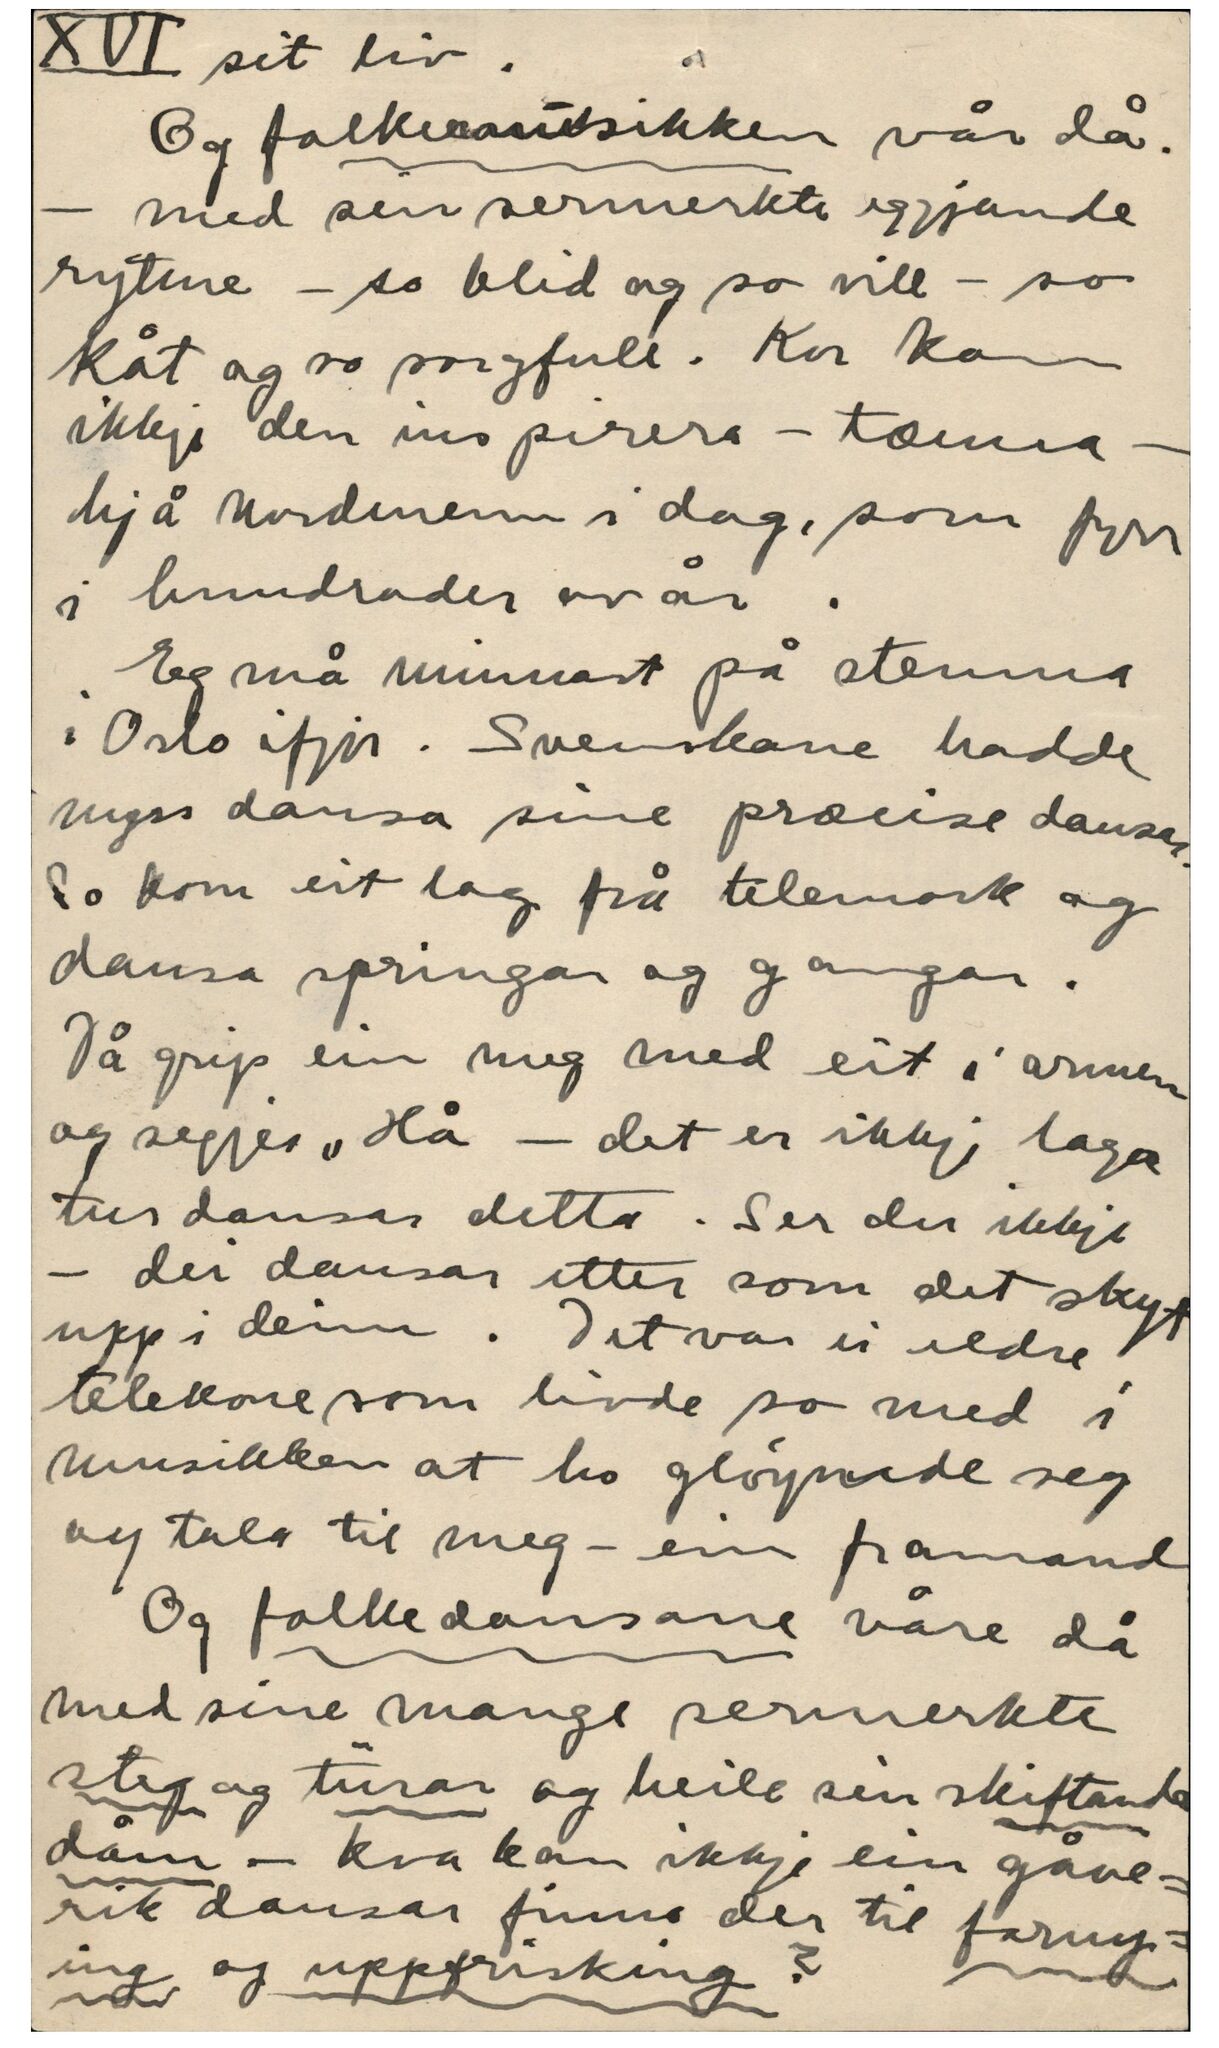 XVI sit liv.
Og folkemusikken vår då.
– med sin sermerkte eggjande
rytme – so blid og so vill – so
kåt og so sorgfull. Kor kann
ikkje den inspirera – tæma –
hjå Nordmenn i dag, som fyrr
i hundrader av år.
Eg må minnast på stemna
i Oslo ifjor. Svenskane hadde
nyss dansa sine præcise dansar.
So kom eit lag frå telemark og
dansa springar og gangar.
Då greip ein meg med eit i armen
og segjer „Hå – det er ikkje laga
turdansar detta. Ser du ikkje
– dei dansar etter som det skyt
upp i deim. Det var ei eldre
telekone som livde so med i
musikken at ho gløymde seg
og tala til meg – ein framand
Og folkedansane våre då
med sine mange sermerkte
steg og tūrar og heile sin skiftande
dåm – kva kan ikkje ein gåve=
rik dansar finna der til forny=
ing og uppfrisking?